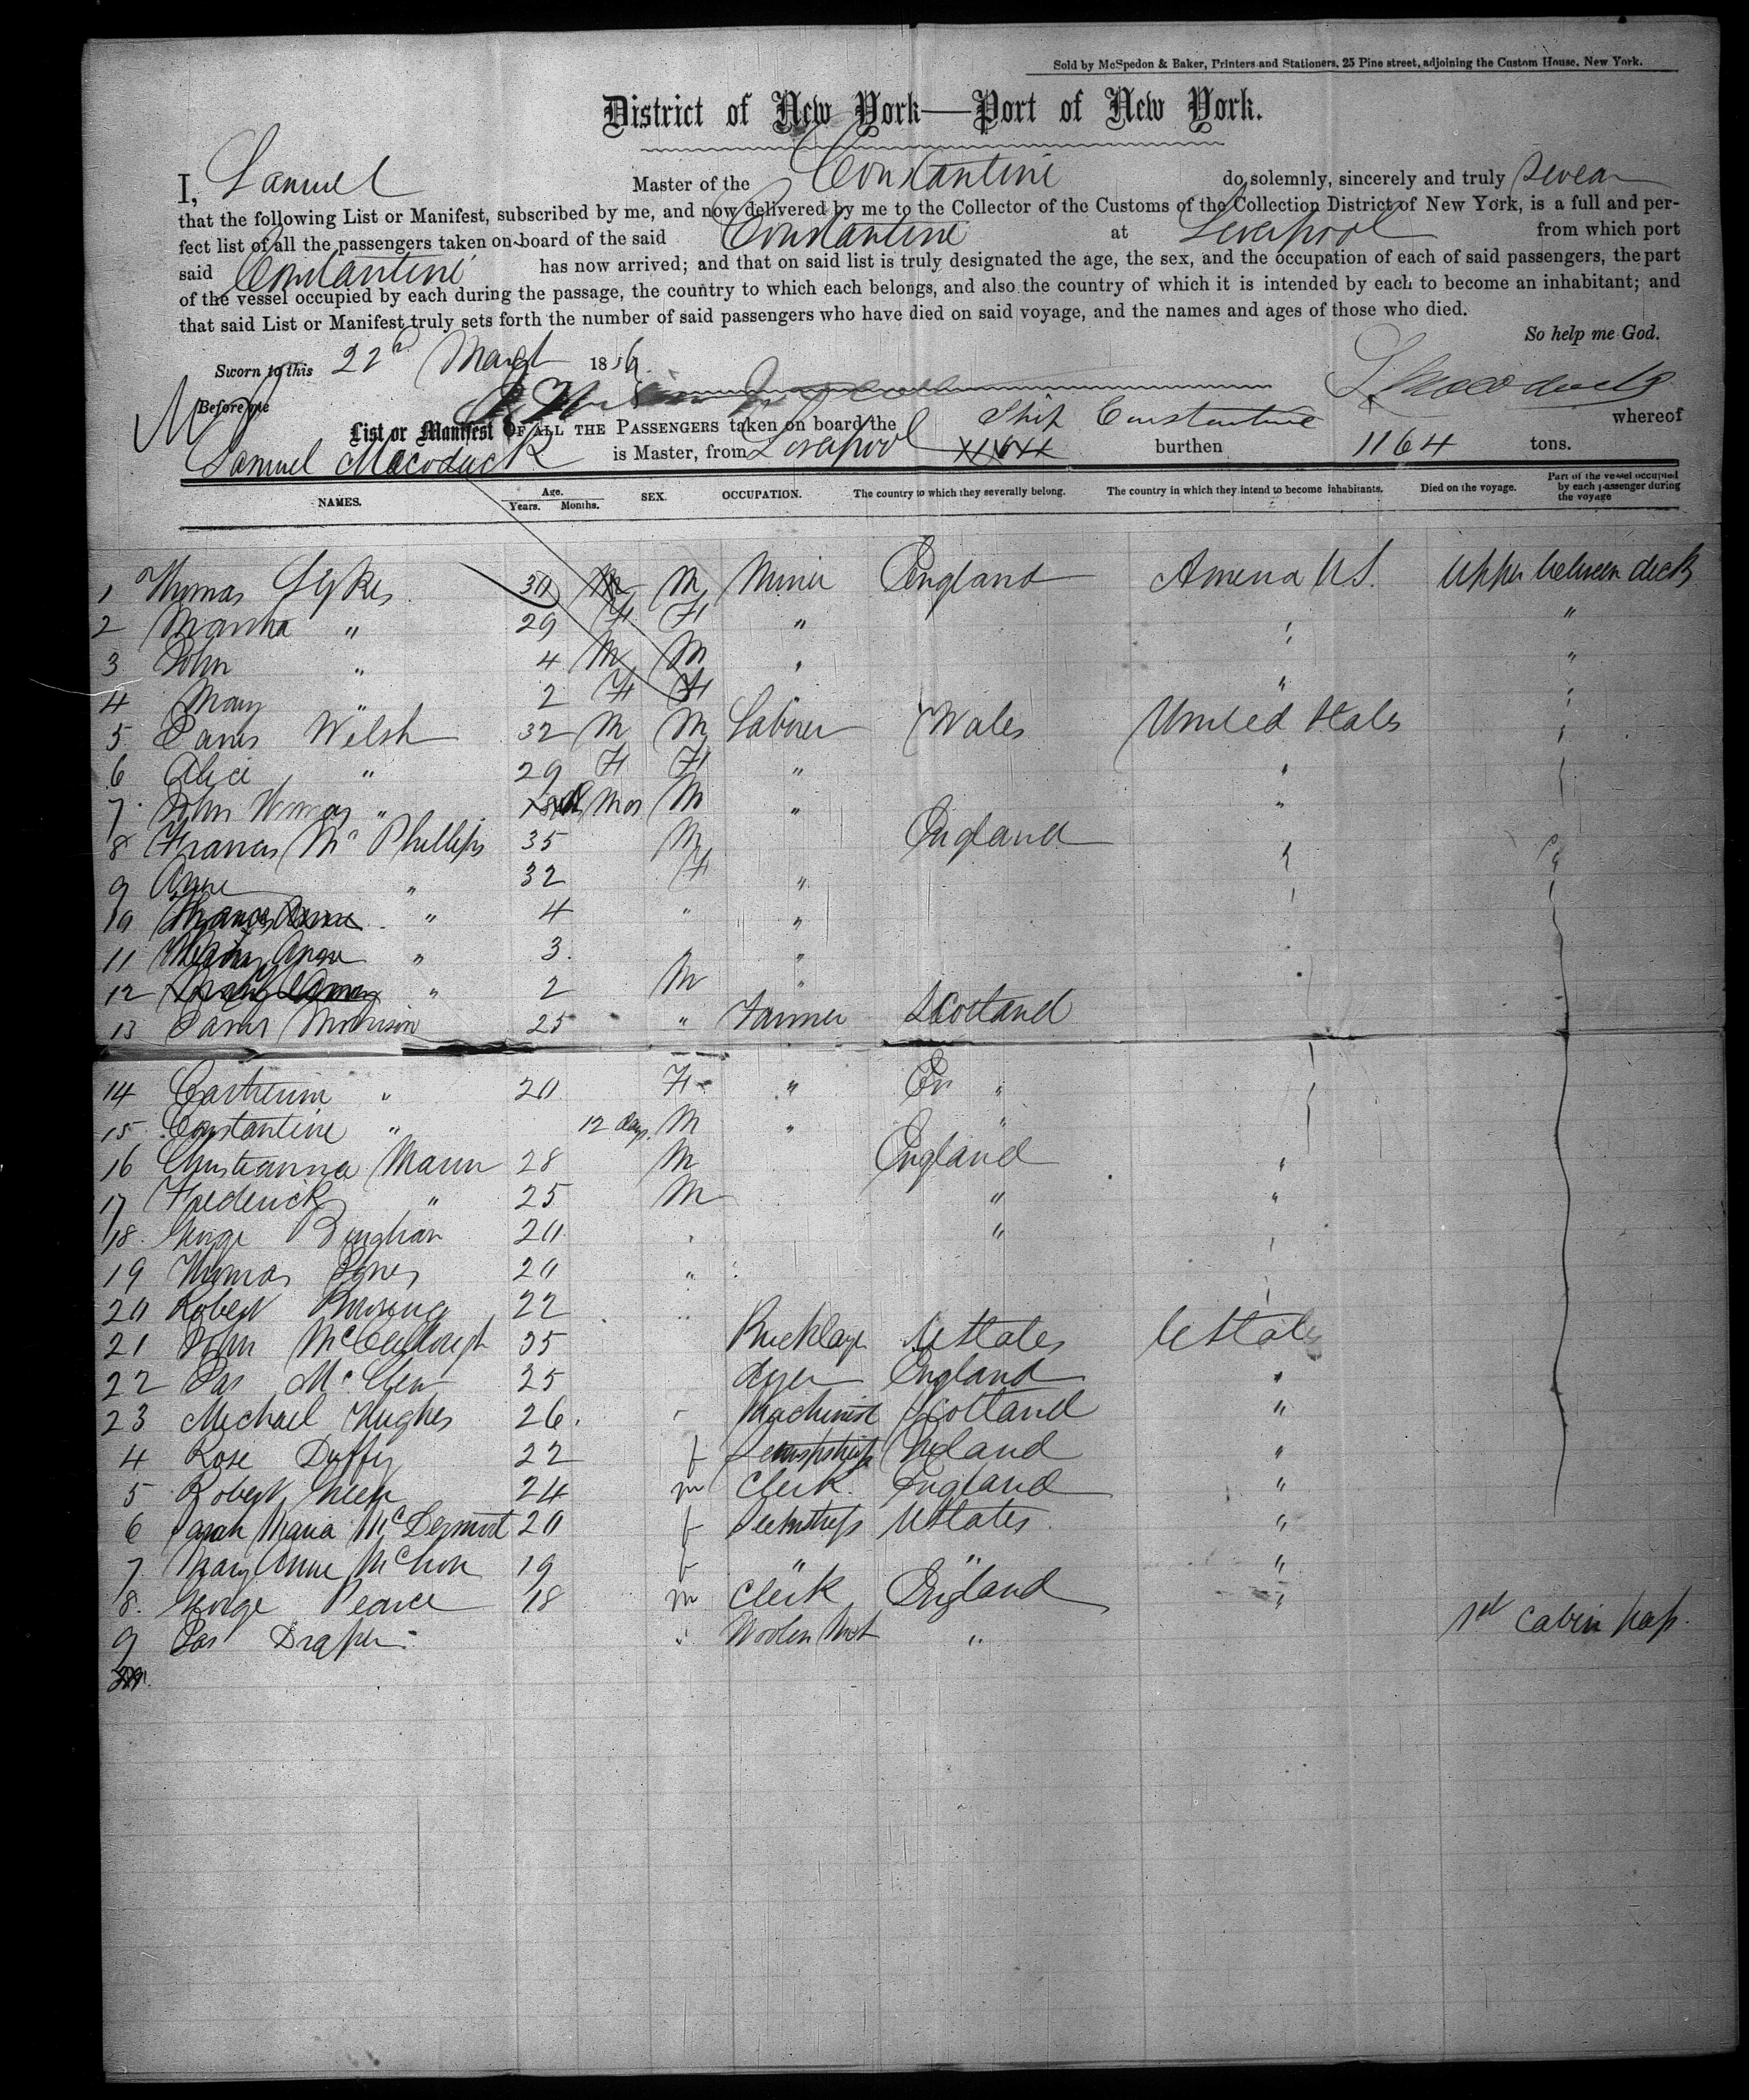 Sold by McSpedon & Baker, Printers and Stationers, 25 Pine street, adjoining the Custom House, New York.
District of New York—Port of New York.
I, Samuel Master of the Constantine do solemnly, sincerely and truly swear
that the following List or Manifest, subscribed by me, and now delivered by me to the Collector of the Customs of the Collection District of New York, is a full and per-
fect list of all the passengers taken on board of the said Constantine at Liverpool from which port
said Constantine has now arrived; and that on said list is truly designated the age, the sex, and the occupation of each of said passengers, the part
of the vessel occupied by each during the passage, the country to which each belongs, and also the country of which it is intended by each to become an inhabitant; and
that said List or Manifest truly sets forth the number of said passengers who have died on said voyage, and the names and ages of those who died.
So help me God.
Sworn to this 22 March 18
Before me
List or Manifest OF ALL THE PASSENGERS taken on board the Ship Constantine whereof
Samuel Macoduck is Master, from Liverpool burthen 1164 tons.
NAMES. Age. Years. Months. SEX. OCCUPATION. The country to which they severally belong. The country in which they intend to become inhabitants. Died on the voyage. Part of the vessel occupied by each passenger during the voyage
1 Thomas Sykes 30 M M Miner England America US. Upper between deck
2 Martha " 29 F F " " "
3 John " 4 M M " "
4 Mary " 2 F F " "
5 James Welsh 32 M M Laborer Wales United States "
6 Alice " 29 F F " "
7 John Thomas " Mos M " "
8 Francis Mc Phillips 35 M England "
9 Anne " 32 F " "
10 " 4 " "
11 Anne " 3 " "
12 " 2 M "
13 James Morrison 25 " Farmer Scotland
14 Catherine " 20 F " En "
15 Constantine " 12 days M " "
16 Christianna Mann 28 M England "
17 Frederick " 25 M " "
18 George Bingham 20 "
19 Thomas Jones 20 "
20 Robert 22 "
21 John McCullough 35 UStates UStates
22 Jas 25 dyer England "
23 Michael Hughes 26. Machinist Scotland "
4 Rose Duffy 22 f Ireland "
5 Robert 24 m Clerk England "
6 Sarah Maria McDermot 20 f UStates "
7 Mary Anne 19 f " " "
8. George Pearce 18 m Clerk England "
9 Jas Draper " Woolen Mct " 1st Cabin pass.